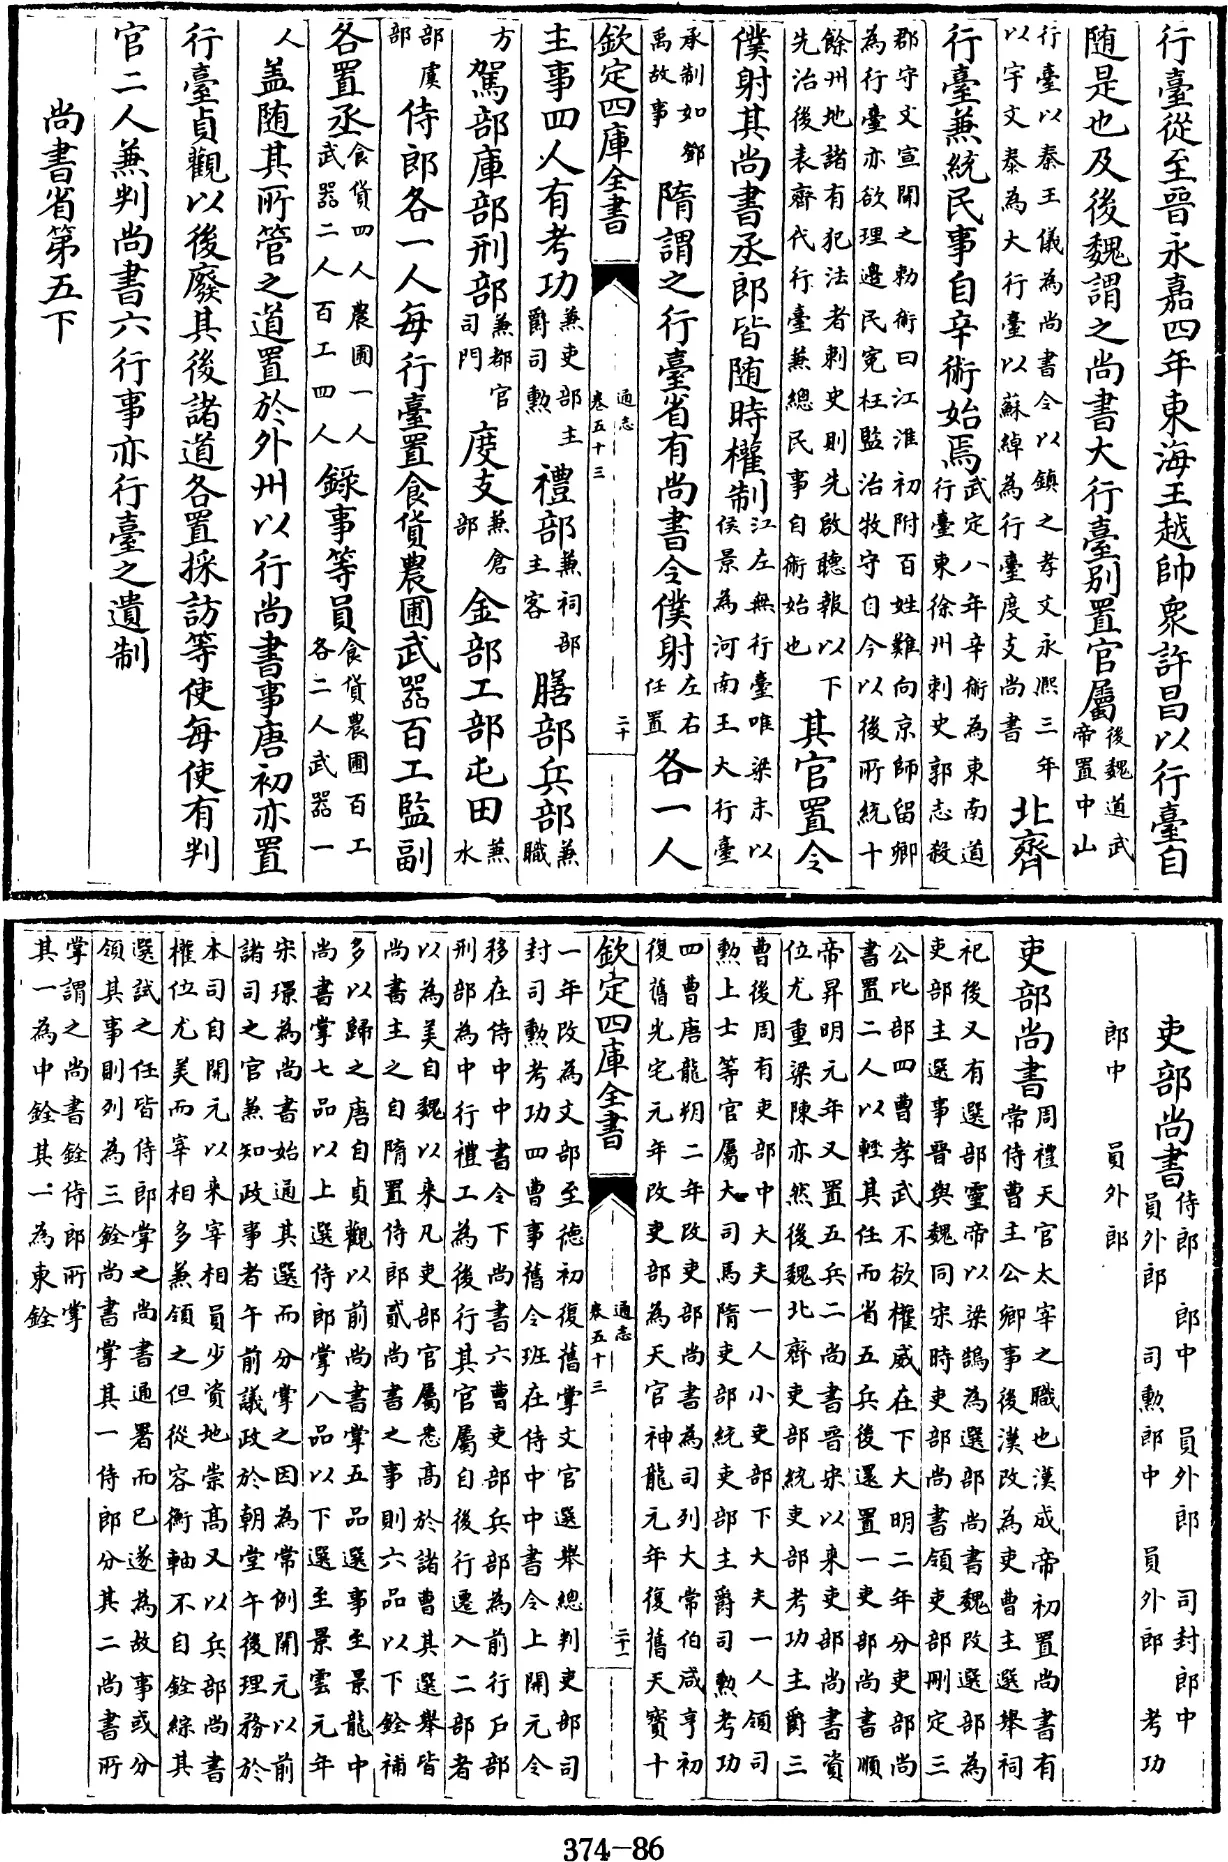 行臺從至晉永嘉四年東海王越帥衆許昌以行臺自
随是也及後魏謂之尚書大行臺别置官屬後魏道武帝置中山
行臺以秦王儀為尚書令以鎮之孝文永熈三年以宇文泰為大行臺以蘇綽為行臺度支尚書北齊
行臺兼統民事自辛術始焉武定八年辛術為東南道行臺東徐州刺史郭志殺
郡守文宣聞之勅術曰江淮初附百姓難向京師留卿為行臺亦欲理邊民寃枉監治牧守自今以後所統十
餘州地諸有犯法者刺史則先啟聽報以下先治後表齊代行臺兼總民事自術始也其官置令
僕射其尚書丞郎皆随時權制江左無行臺唯梁末以侯景為河南王大行臺
承制如鄧禹故事隋謂之行臺省有尚書令僕射左右任置各一人
欽定四庫全書 通志 卷五十三 二十
主事四人有考功兼吏部主爵司勲禮部兼祠部主客膳部兵部兼職
方駕部庫部刑部兼都官司門度支兼倉部金部工部屯田兼水
部虞部侍郎各一人每行臺置食貨農圃武器百工監副
各置丞食貨四人農圃一人武器二人百工四人録事等員食貨農圃百工各二人武器一
人盖随其所管之道置於外州以行尚書事唐初亦置
行臺貞觀以後廢其後諸道各置採訪等使每使有判
官二人兼判尚書六行事亦行臺之遺制
尚書省第五下
吏部尚書侍郎 郎中 員外郎 司封郎中 員外郎 司勲郎中 員外郎 考功
郎中 員外郎
吏部尚書周禮天官太宰之職也漢成帝初置尚書有常侍曹主公卿事後漢改為吏曹主選舉祠
祀後又有選部靈帝以梁鵠為選部尚書魏改選部為吏部主選事晉與魏同宋時吏部尚書領吏部刪定三
公比部四曹孝武不欲權威在下大明二年分吏部尚書置二人以輕其任而省五兵後還置一吏部尚書順
帝昇明元年又置五兵二尚書晉宋以来吏部尚書資位尤重梁陳亦然後魏北齊吏部統吏部考功主爵三
曹後周有吏部中大夫一人小吏部下大夫一人領司勲上士等官屬大司馬隋吏部統吏部主爵司勲考功
四曹唐龍朔二年改吏部尚書為司列大常伯咸亨初復舊光宅元年改吏部為天官神龍元年復舊天寳十
欽定四庫全書 通志 卷五十三 二十一
一年改為文部至德初復舊掌文官選舉總判吏部司封司勲考功四曹事舊令班在侍中中書令上開元令
移在侍中中書令下尚書六曹吏部兵部為前行戸部刑部為中行禮工為後行其官屬自後行遷入二部者
以為美自魏以来凡吏部官屬悉高於諸曹其選舉皆尚書主之自隋置侍郎貳尚書之事則六品以下銓補
多以歸之唐自貞觀以前尚書掌五品選事至景龍中尚書掌七品以上選侍郎掌八品以下選至景雲元年
宋璟為尚書始通其選而分掌之因為常例開元以前諸司之官兼知政事者午前議政於朝堂午後理務於
本司自開元以来宰相員少資地崇高又以兵部尚書權位尤美而宰相多兼領之但從容衡軸不自銓綜其
選試之任皆侍郎掌之尚書通署而已遂為故事或分領其事則列為三銓尚書掌其一侍郎分其二尚書所
掌謂之尚書銓侍郎所掌其一為中銓其一為東銓
374-86